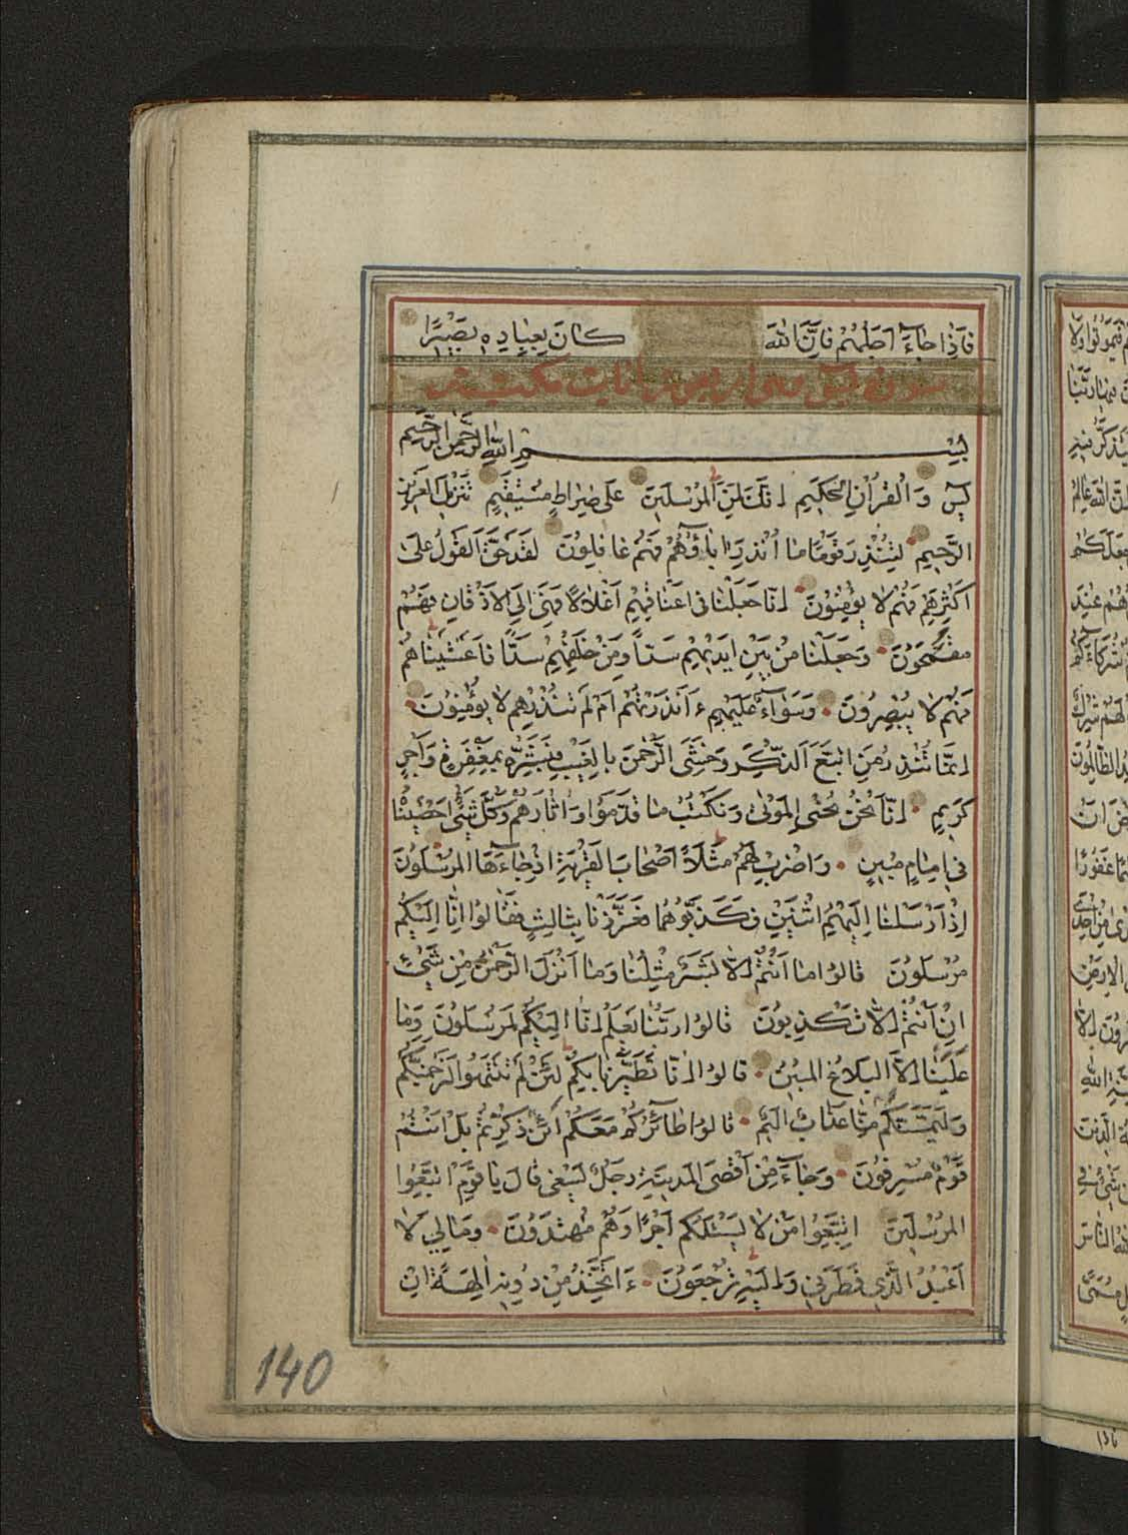 فَاِذَا جَاءَ اَجَلُهُمْ فَاِنَّ اللّٰهَ كَانَ بِعِبَادِهِ بَصِيرًا
سورة يس
بِسْمِ اللّٰهِ الرَّحْمٰنِ الرَّحِيمِ
يٰسٓ وَالْقُرْاٰنِ الْحَكِيمِ اِنَّكَ لَمِنَ الْمُرْسَلِينَ عَلٰى صِرَاطٍ مُسْتَقِيمٍ تَنْزِيلَ الْعَزِيزِ
الرَّحِيمِ لِتُنْذِرَ قَوْمًا مَا اُنْذِرَ اٰبَاؤُهُمْ فَهُمْ غَافِلُونَ لَقَدْ حَقَّ الْقَوْلُ عَلٰى
اَكْثَرِهِمْ فَهُمْ لَا يُؤْمِنُونَ اِنَّا جَعَلْنَا فِى اَعْنَاقِهِمْ اَغْلَالًا فَهِىَ اِلَى الْاَذْقَانِ فَهُمْ
مُقْمَحُونَ وَجَعَلْنَا مِنْ بَيْنِ اَيْدِيهِمْ سَدًّا وَمِنْ خَلْفِهِمْ سَدًّا فَاَغْشَيْنَاهُمْ
فَهُمْ لَا يُبْصِرُونَ وَسَوَاءٌ عَلَيْهِمْ ءَاَنْذَرْتَهُمْ اَمْ لَمْ تُنْذِرْهُمْ لَا يُؤْمِنُونَ
اِنَّمَا تُنْذِرُ مَنِ اتَّبَعَ الذِّكْرَ وَخَشِىَ الرَّحْمٰنَ بِالْغَيْبِ فَبَشِّرْهُ بِمَغْفِرَةٍ وَاَجْرٍ
كَرِيمٍ اِنَّا نَحْنُ نُحْيِى الْمَوْتٰى وَنَكْتُبُ مَا قَدَّمُوا وَاٰثَارَهُمْ وَكُلَّ شَىْءٍ اَحْصَيْنَاهُ
فِى اِمَامٍ مُبِينٍ وَاضْرِبْ لَهُمْ مَثَلًا اَصْحَابَ الْقَرْيَةِ اِذْ جَاءَهَا الْمُرْسَلُونَ
اِذْ اَرْسَلْنَا اِلَيْهِمُ اثْنَيْنِ فَكَذَّبُوهُمَا فَعَزَّزْنَا بِثَالِثٍ فَقَالُوا اِنَّا اِلَيْكُمْ
مُرْسَلُونَ قَالُوا مَا اَنْتُمْ اِلَّا بَشَرٌ مِثْلُنَا وَمَا اَنْزَلَ الرَّحْمٰنُ مِنْ شَىْءٍ
اِنْ اَنْتُمْ اِلَّا تَكْذِبُونَ قَالُوا رَبُّنَا يَعْلَمُ اِنَّا اِلَيْكُمْ لَمُرْسَلُونَ وَمَا
عَلَيْنَا اِلَّا الْبَلَاغُ الْمُبِينُ قَالُوا اِنَّا تَطَيَّرْنَا بِكُمْ لَئِنْ لَمْ تَنْتَهُوا لَنَرْجُمَنَّكُمْ
وَلَيَمَسَّنَّكُمْ مِنَّا عَذَابٌ اَلِيمٌ قَالُوا طَائِرُكُمْ مَعَكُمْ اَئِنْ ذُكِّرْتُمْ بَلْ اَنْتُمْ
قَوْمٌ مُسْرِفُونَ وَجَاءَ مِنْ اَقْصَى الْمَدِينَةِ رَجُلٌ يَسْعٰى قَالَ يَا قَوْمِ اتَّبِعُوا
الْمُرْسَلِينَ اِتَّبِعُوا مَنْ لَا يَسْئَلُكُمْ اَجْرًا وَهُمْ مُهْتَدُونَ وَمَا لِىَ لَا
اَعْبُدُ الَّذِى فَطَرَنِى وَاِلَيْهِ تُرْجَعُونَ ءَاَتَّخِذُ مِنْ دُونِهِ اٰلِهَةً اِنْ
140